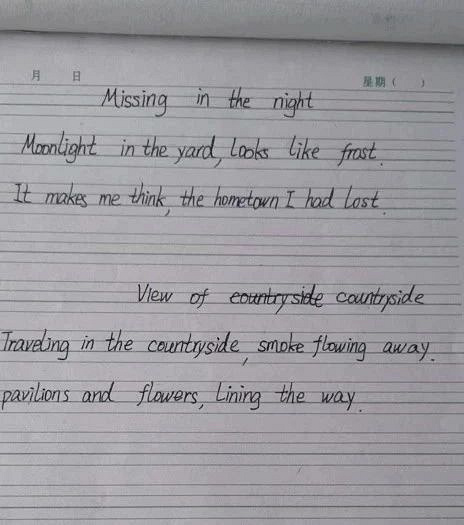 月 日 星期( )
Missing in the night
Moonlight in the yard, looks like frost.
It makes me think, the hometown I had lost.
View of countryside countryside
Traveling in the countryside, smoke flowing away.
pavilions and flowers, Lining the way.